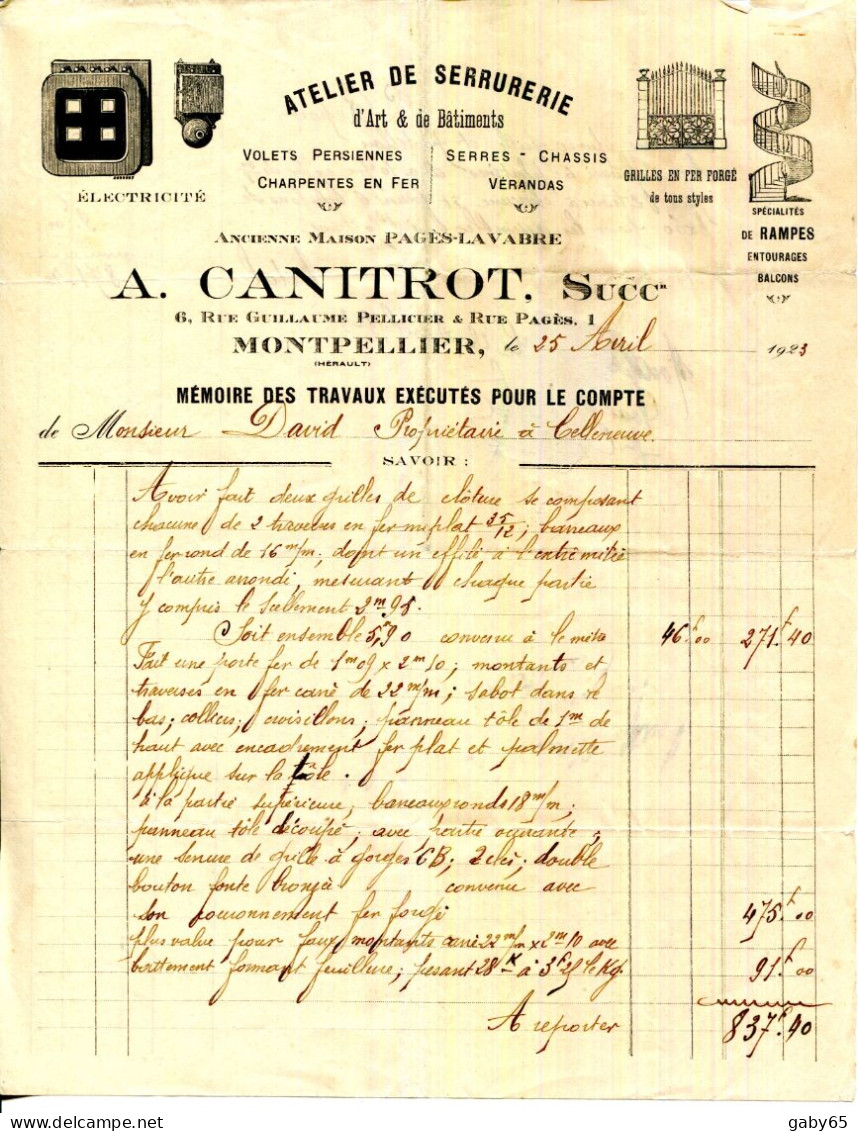 ATELIER DE SERRURERIE
d'Art & de Bâtiments
VOLETS PERSIENNES
CHARPENTES EN FER
SERRES - CHASSIS
VÉRANDAS
ÉLECTRICITÉ
GRILLES EN FER FORGÉ
de tous styles
SPÉCIALITÉS
DE RAMPES
ENTOURAGES
BALCONS
ANCIENNE MAISON PAGÈS-LAVABRE
A. CANITROT, SUCCR
6, RUE GUILLAUME PELLICIER & RUE PAGÈS, 1
MONTPELLIER, le 25 Avril 1923
(HÉRAULT)
MÉMOIRE DES TRAVAUX EXÉCUTÉS POUR LE COMPTE
de Monsieur David Propriétaire à Celleneuve.
SAVOIR :
Avoir fait deux grilles de clôture se composant
chacune de 2 traverses en fer mi plat 35/12; barreaux
en fer rond de 16 m/m; dont un effilé à l'extrêmitée
l'autre arrondi, mesurant chaque partie
y compris le scellement 2m95.
Soit ensemble 5m90 convenu à le mètre 46f.00 271f.40
Fait une porte fer de 1m09 x 2m10; montants et
traverses en fer carré de 22 m/m; sabot dans le
bas; colliers; croisillons; panneau tôle de 1m de
haut avec encadrement fer plat et palmette
applique sur la tôle.
à la partie supérieure, barreaux ronds 18 m/m;
panneau tôle découpé; avec partie ouvrante;
une serrure de grille à gorges CB; 2 clés; double
bouton fonte bronzé convenu avec
son couronnement fer forgé 475f.00
plus value pour faux montants carré 22 m/m x 2m10 avec
battement formant feuillure; pesant 28K à 3f25 le Kg. 91f.00
A reporter 837f.40
delcampe.net
gaby65